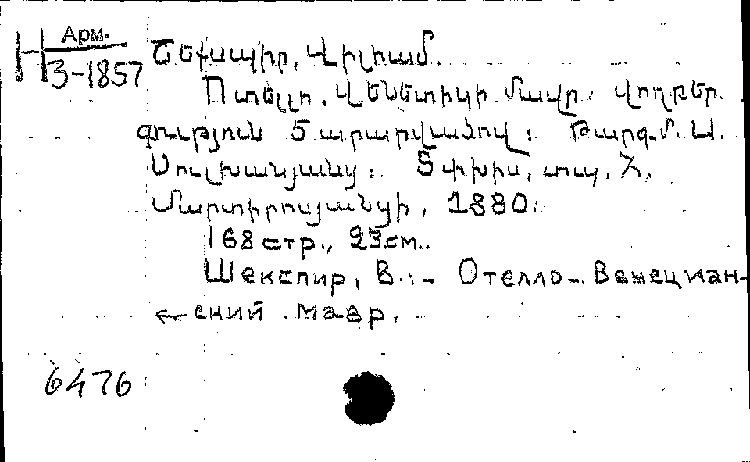 Арм.
Н
3-1857
Շեքսպիր, Վիլիամ.
Ոտելլո. Վենետիկի մավր. վողբեր
գություն 5 արարվածով: Թարգ. Մ. Ա.
Սուլխանյանց: Տփխիս, տպ. Հ.
Մարտիրոսյանցի, 1880.
168 стр., 23 см.
Шекспир, В.:- Отелло-Венециан-
ский мавр.
6476